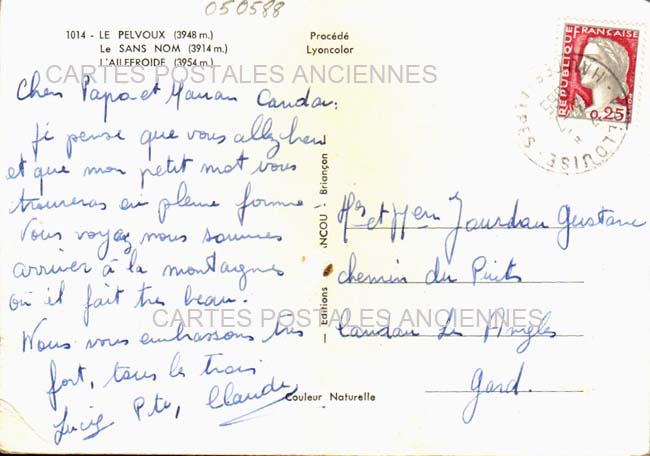 050588
1014 - LE PELVOUX (3948 m.)
Le SANS NOM (3914 m.)
L'AILEFROIDE (3954 m.)
Procédé
Lyoncolor
CARTES POSTALES ANCIENNES
REPUBLIQUE FRANÇAISE
0,25
Cher Papa et Maman
je pense que vous allez bien
et que mon petit mot vous
trouveras en pleine forme -
Vous voyez nous sommes
arriver à la montagnes
où il fait très beau.
Nous vous embrassons très
fort, tous les trois
Claude
Editions
Briançon
Jourdan Gustave
chemin du Puits
Les Angles
Gard.
CARTES POSTALES ANCIENNES
Couleur Naturelle